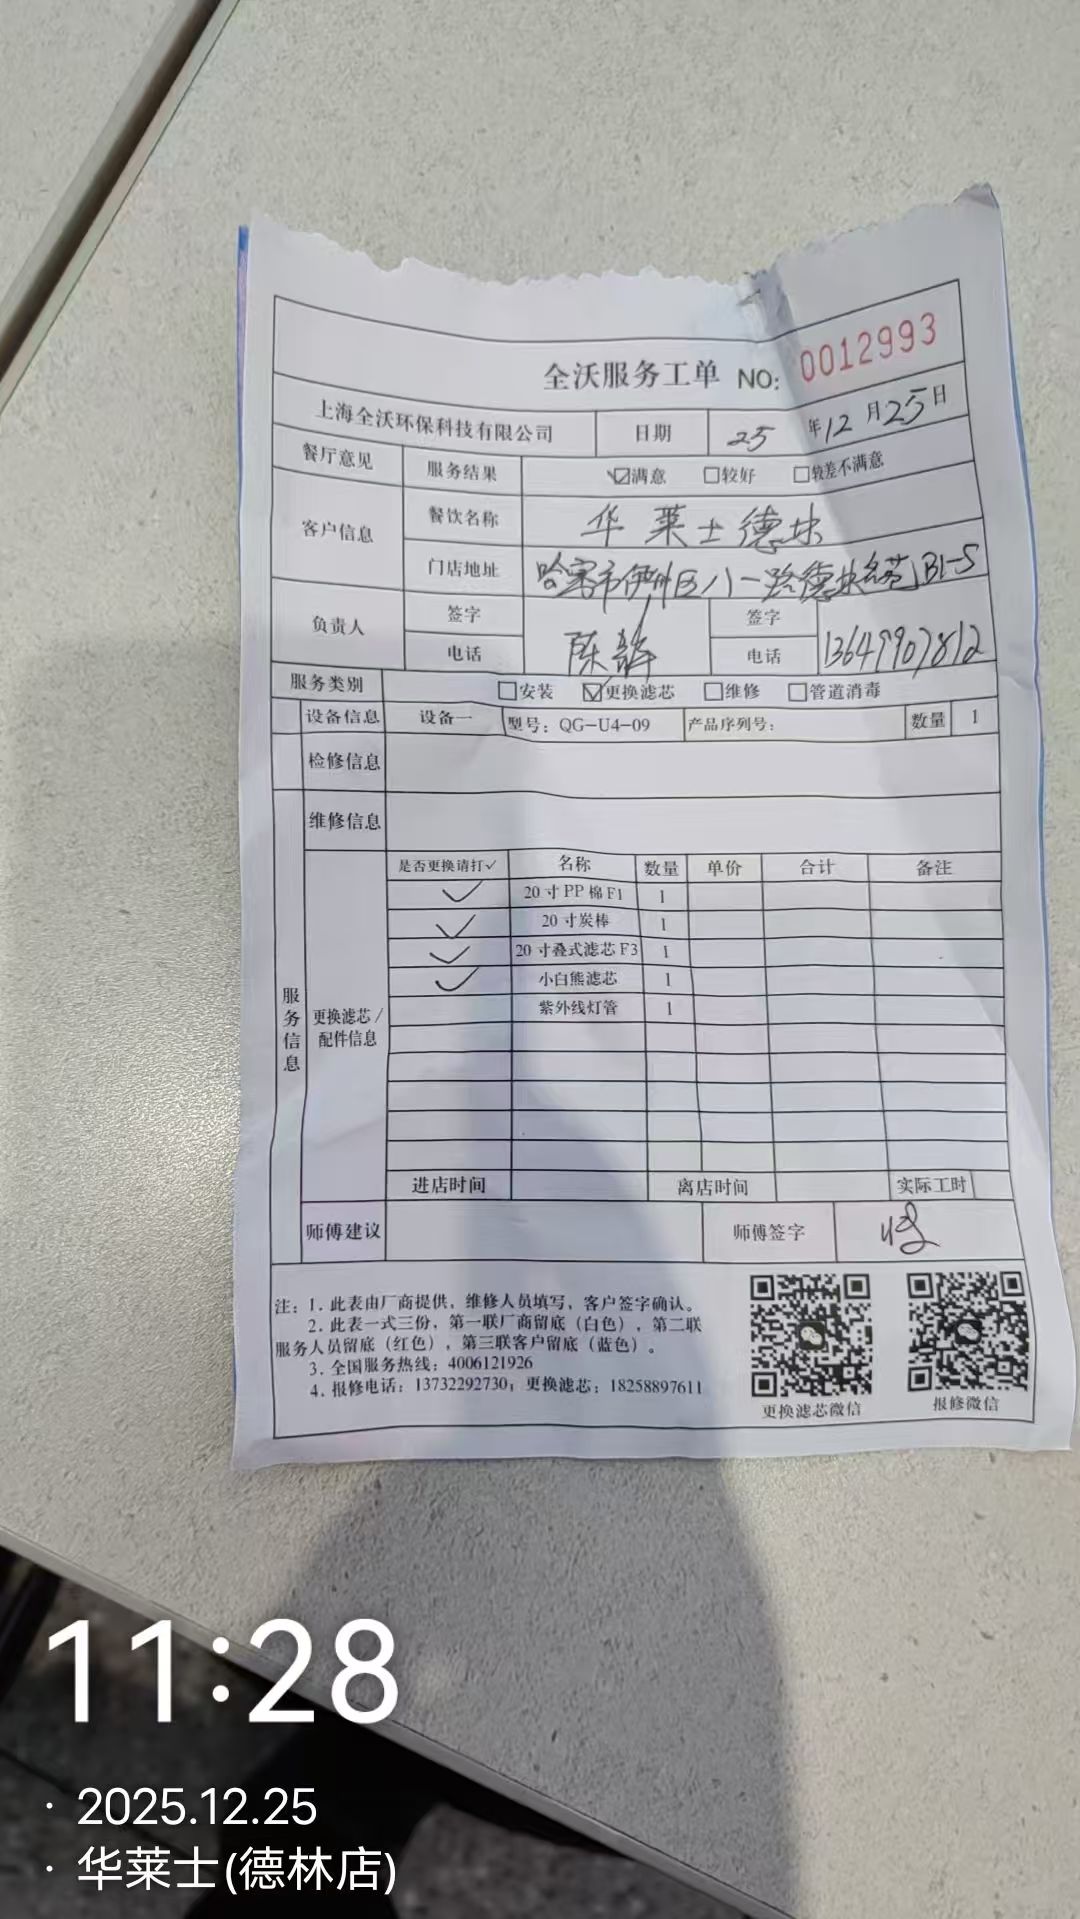 全沃服务工单 NO: 0012993
上海全沃环保科技有限公司 日期 25 年12月25日
餐厅意见 服务结果 ☑满意 □较好 □较差不满意
客户信息 餐饮名称 华莱士德林
门店地址 哈密市伊州区八一路德林 B1-5
负责人 签字 陈 签字
电话 电话 13649907812
服务类别 □安装 ☑更换滤芯 □维修 □管道消毒
设备信息 设备一 型号：QG-U4-09 产品序列号： 数量 1
检修信息
维修信息
是否更换请打✓ 名称 数量 单价 合计 备注
✓ 20寸PP棉F1 1
✓ 20寸炭棒 1
✓ 20寸叠式滤芯F3 1
✓ 小白熊滤芯 1
紫外线灯管 1
服务信息
更换滤芯/
配件信息
进店时间 离店时间 实际工时
师傅建议 师傅签字
注：1. 此表由厂商提供，维修人员填写，客户签字确认。
2. 此表一式三份，第一联厂商留底（白色），第二联
服务人员留底（红色），第三联客户留底（蓝色）。
3. 全国服务热线：4006121926
4. 报修电话：13732292730；更换滤芯：18258897611
更换滤芯微信 报修微信
11:28
· 2025.12.25
· 华莱士(德林店)